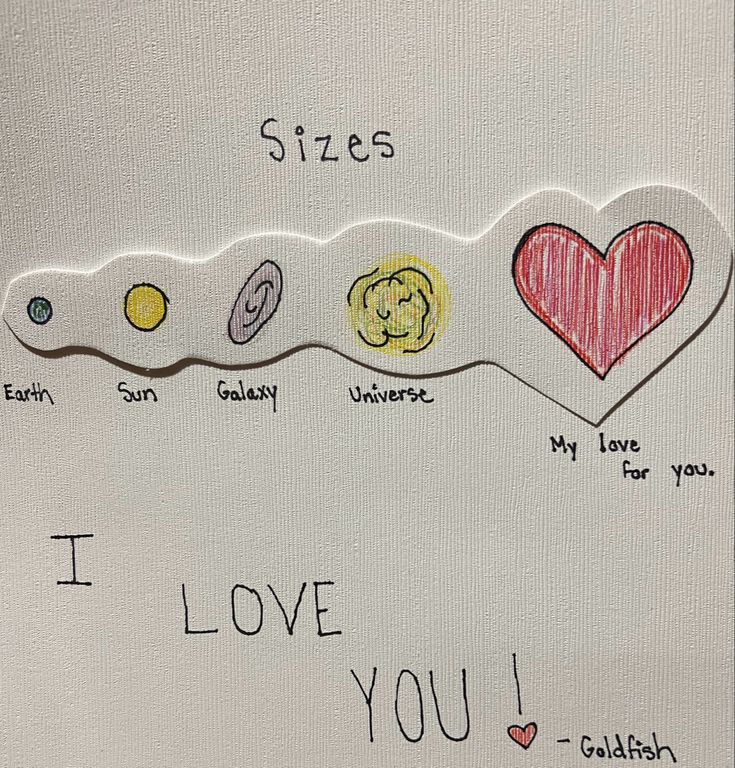 Sizes
Earth Sun Galaxy Universe
My love
for you.
I
LOVE
YOU!
- Goldfish